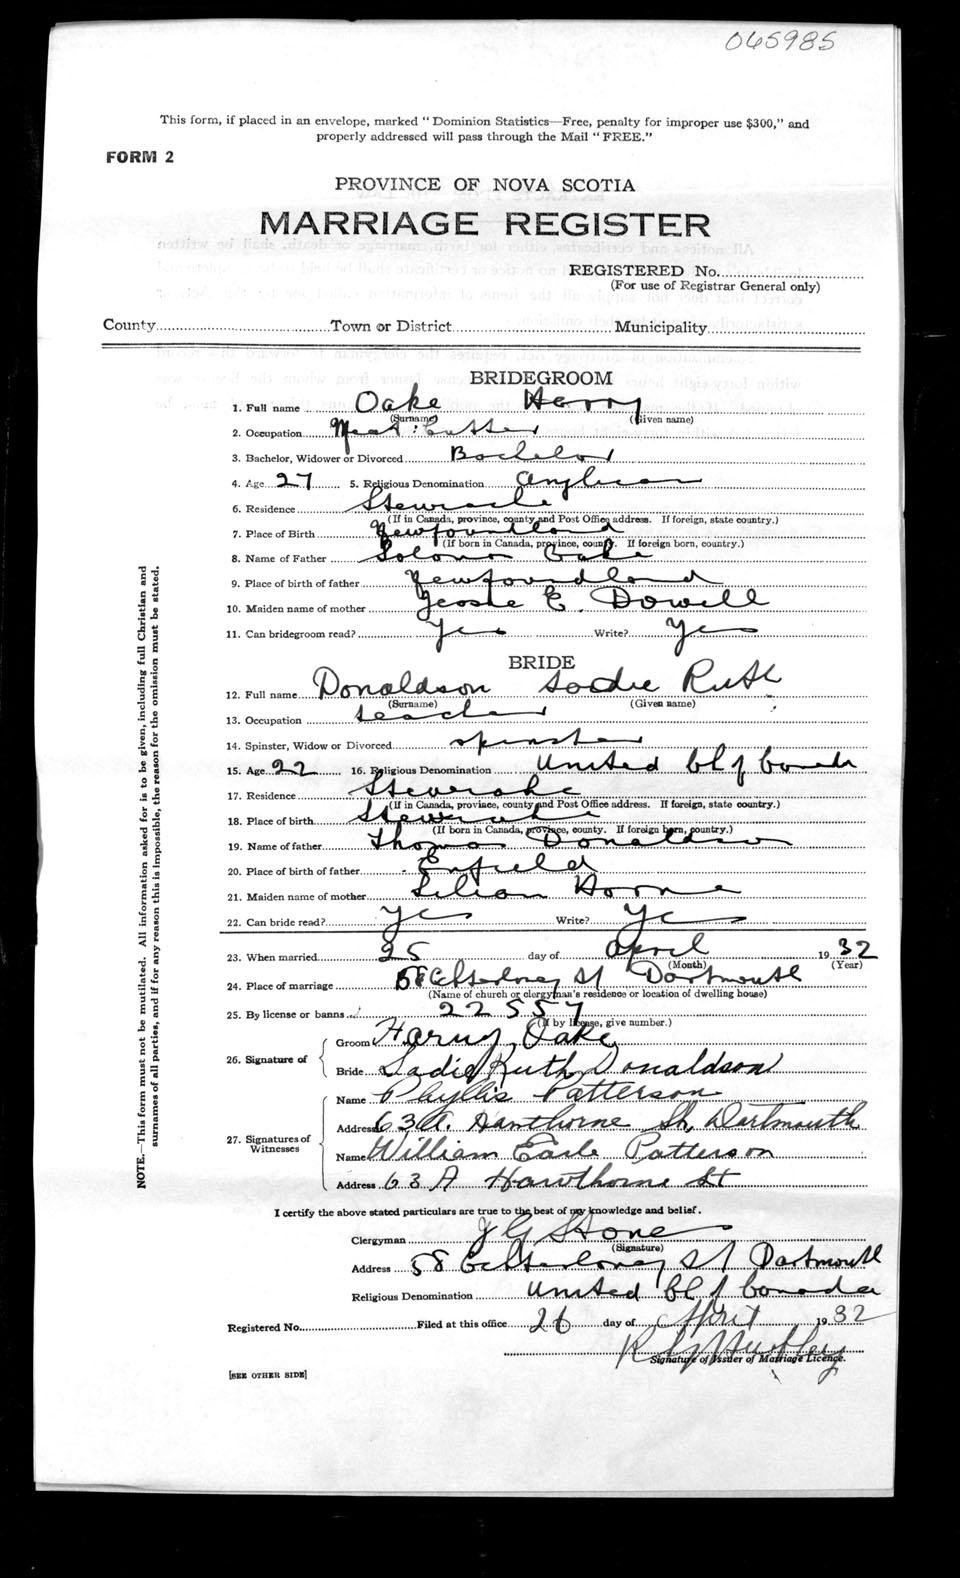 065985
This form, if placed in an envelope, marked "Dominion Statistics—Free, penalty for improper use $300," and
properly addressed will pass through the Mail "FREE."
FORM 2
PROVINCE OF NOVA SCOTIA
MARRIAGE REGISTER
REGISTERED No.
(For use of Registrar General only)
County Town or District Municipality
BRIDEGROOM
1. Full name Oake Harry
(Surname) (Given name)
2. Occupation Meat Cutter
3. Bachelor, Widower or Divorced Bachelor
4. Age 27 5. Religious Denomination Anglican
6. Residence Stewiacke
(If in Canada, province, county and Post Office address. If foreign, state country.)
7. Place of Birth Newfoundland
(If born in Canada, province, county. If foreign born, country.)
8. Name of Father Solomon Oake
9. Place of birth of father Newfoundland
10. Maiden name of mother E. Dowell
11. Can bridegroom read? Yes Write? Yes
BRIDE
12. Full name Donaldson Sadie Ruth
(Surname) (Given name)
13. Occupation teacher
14. Spinster, Widow or Divorced spinster
15. Age 22 16. Religious Denomination United Ch of Canada
17. Residence Stewiacke
(If in Canada, province, county and Post Office address. If foreign, state country.)
18. Place of birth Stewiacke
(If born in Canada, province, county. If foreign born, country.)
19. Name of father Thomas Donaldson
20. Place of birth of father Enfield
21. Maiden name of mother Lilian Horne
22. Can bride read? Yes Write? Yes
23. When married 25 day of April 1932
(Month) (Year)
24. Place of marriage 58 Ochterloney St Dartmouth
(Name of church or clergyman's residence or location of dwelling house)
25. By license or banns 22557
(If by license, give number.)
26. Signature of Groom Harry Oake
Bride Sadie Ruth Donaldson
27. Signatures of Witnesses
Name Phyllis Patterson
Address 63A. Hawthorne St, Dartmouth
Name William Earle Patterson
Address 63 A Hawthorne St
I certify the above stated particulars are true to the best of my knowledge and belief.
Clergyman J G Stone
(Signature)
Address 58 Ochterloney St Dartmouth
Religious Denomination United Ch of Canada
Registered No. Filed at this office 26 day of April 1932
Signature of Issuer of Marriage Licence.
[SEE OTHER SIDE]
NOTE.—This form must not be mutilated. All information asked for is to be given, including full Christian and
surnames of all parties, and if for any reason this is impossible, the reason for the omission must be stated.